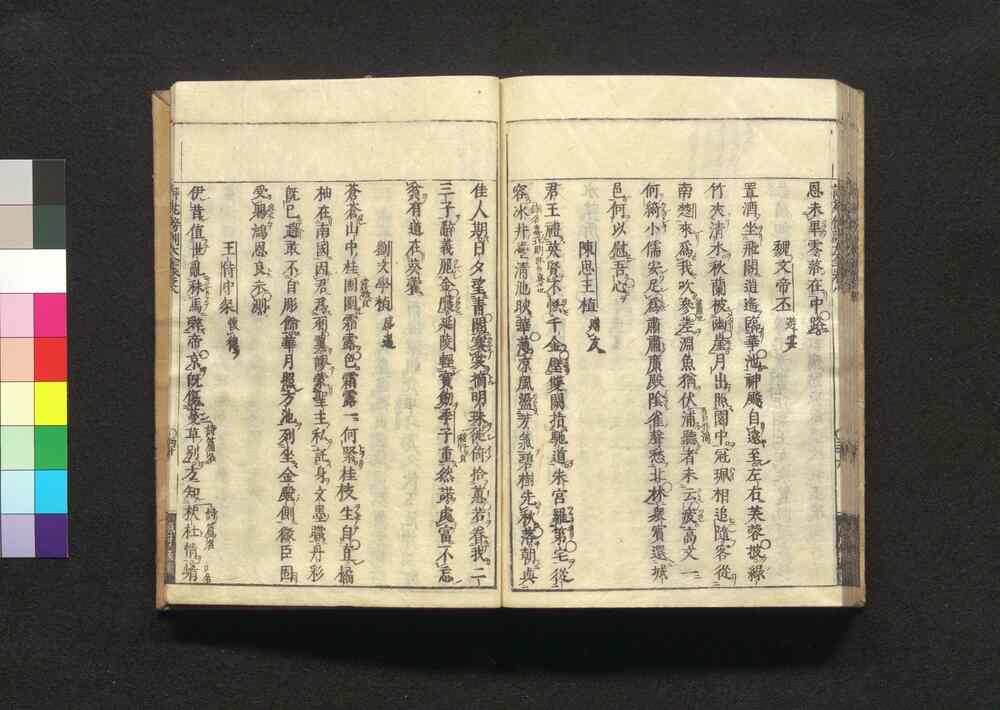 恩未畢零落在中路
魏文帝丕 遊宴
置酒坐飛閣逍遙臨華池神飈自遠至左右芙蓉披綠
竹夾清水秋蘭被幽崖月出照園中冠珮相追隨客從
南楚來爲我吹參差淵魚猶伏浦聽者未云疲高文一
何綺小儒安足爲肅肅廣殿陰雀聲愁北林衆賓還城
邑何以慰吾心
陳思王植 贈友
君王禮英賢不恡千金璧雙闕指馳道朱宮羅第宅從
容冰井臺清池映華薄凉風盪芳氣碧樹先秋落朝與
佳人期日夕望青閣褰裳摘明珠徙倚拾蕙若眷我二
三子辭義麗金雘延陵輕寶劍季子重然諾處富不忘
貧有道在葵藿
劉文學楨 感遇
蒼蒼山中桂團團霜露色霜露一何緊桂枝生自直橘
柚在南國因君爲羽翼謬蒙聖主私託身文墨職丹彩
既已過敢不自彫飾華月照方池列坐金殿側微臣固
受賜鴻恩良未測
王侍中粲 懷德
伊昔值世亂秣馬辭帝京既傷蔓草別方知杕杜情崤